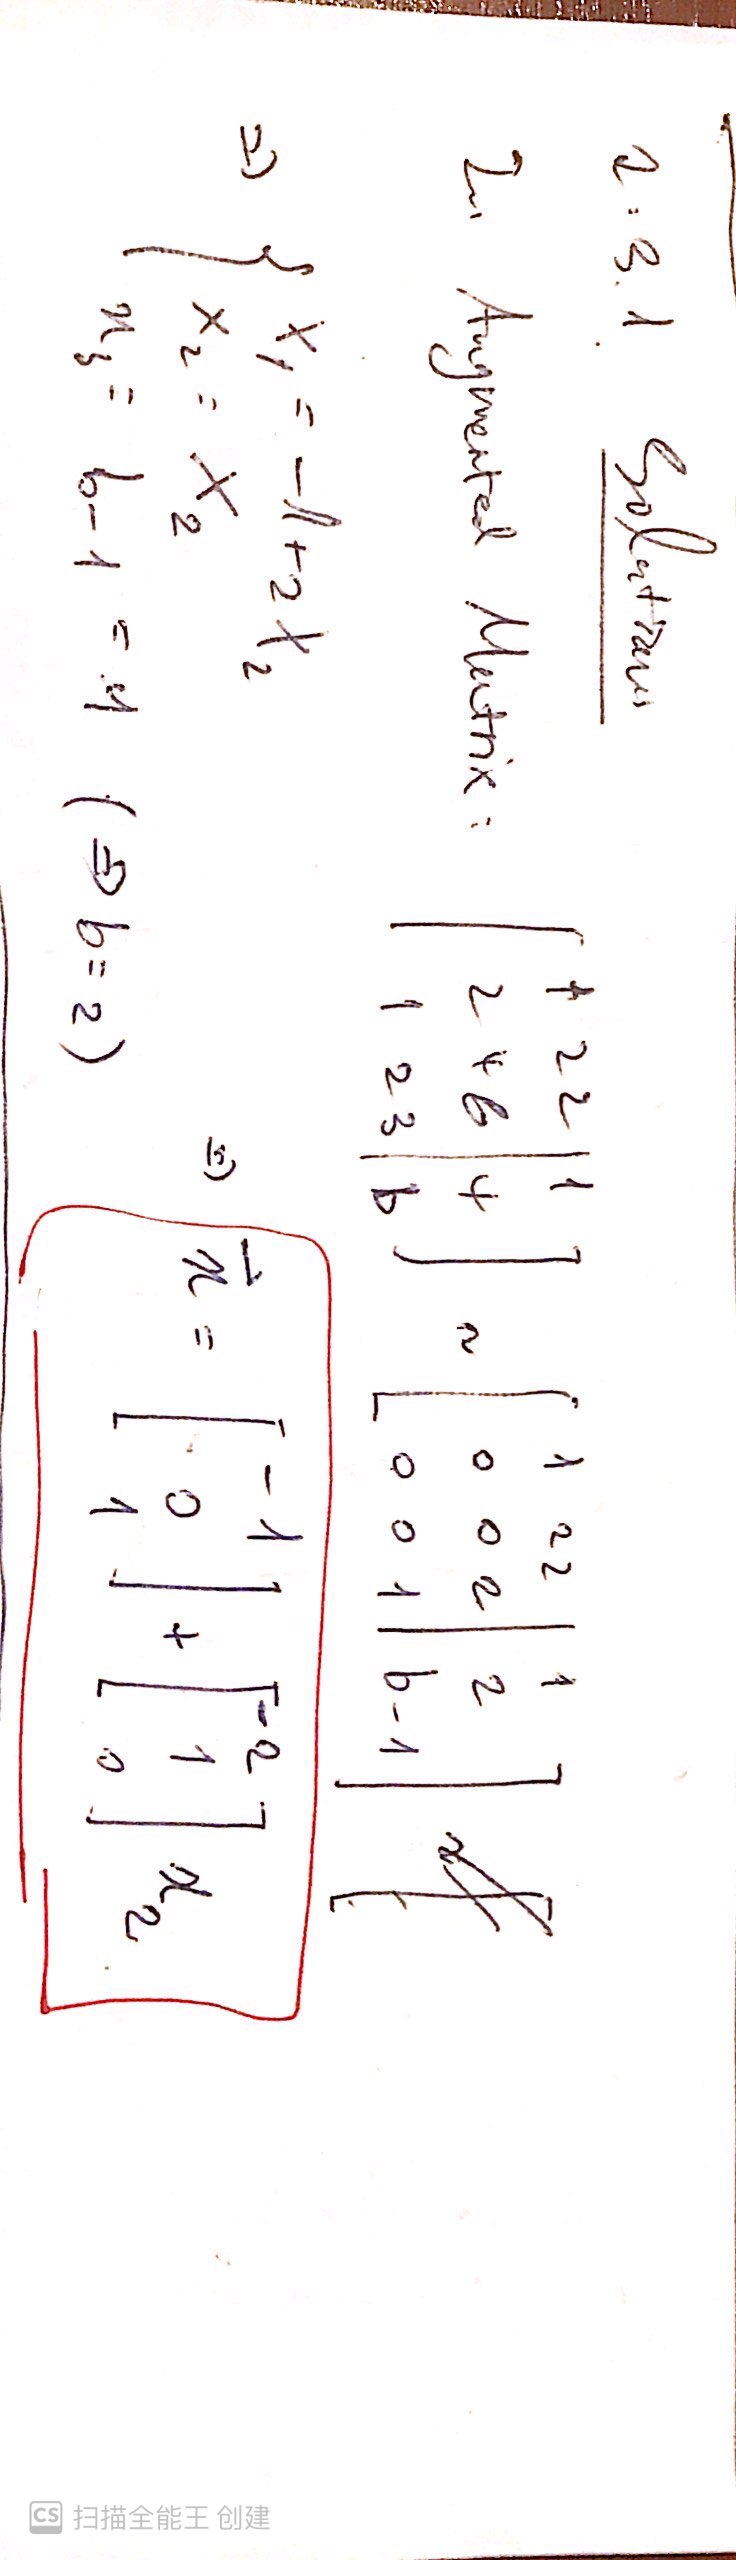 2.3.1 Solutions
I. Augmented Matrix: [ 1 2 2 | 1
2 4 6 | 4
1 2 3 | b ] ~ [ 1 2 2 | 1
0 0 2 | 2
0 0 1 | b-1 ]
⇒ { x₁ = -1+2x₂
x₂ = x₂
x₃ = b-1 = 1 (⇒ b=2)
⇒ x⃗ = [ -1
0
1 ] + [ -2
1
0 ] x₂
CS 扫描全能王 创建